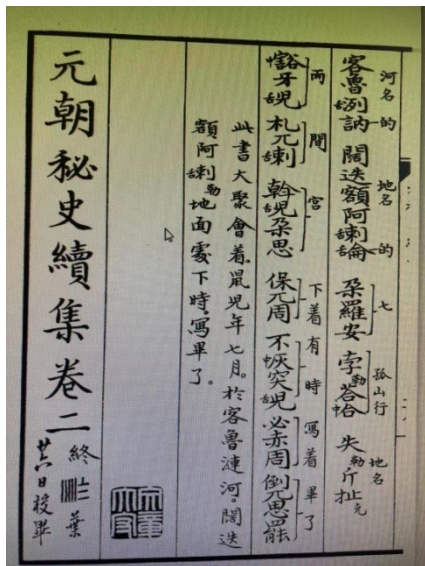 河名的 地名的 七 孤山行 地名
客魯舌洌訥 闊迭額阿舌剌舌論 朶羅安 孛勒荅中合 失勒斤扯克
兩 間 宮 下着有時 寫着畢了
中豁牙舌兒 札兀舌剌 斡舌兒朶思 保兀周 不中恢突舌兒 必赤周 倒兀思罷
此書大聚會着。鼠兒年七月。於客魯漣河。闊迭
額阿舌剌勒地面處下時。寫畢了。
元朝秘史續集卷二 終 葉
廿六日校畢